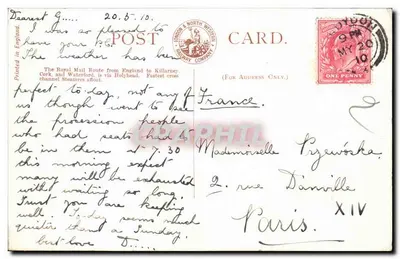 Dearest G.... 20.5.10.
I was so pleased to
have your p.c.
The weather has been
perfect to-day, not any of
us though went to see
the procession people
who had seats had to
be in them at 7.30
this morning I expect
many will be exhausted
with waiting so long,
Trust you are keeping
well. To-day seems much
quieter than a Sunday.
best love D....
Printed in England.
POST CARD.
LONDON & NORTH WESTERN
RAILWAY COMPANY
The Royal Mail Route from England to Killarney
Cork, and Waterford, is via Holyhead. Fastest cross
Channel Steamers afloat.
(For Address Only.)
9 PM
MY 20
10
ONE PENNY
France.
Mademoiselle Przewóska
2. rue Danville
Paris. XIV